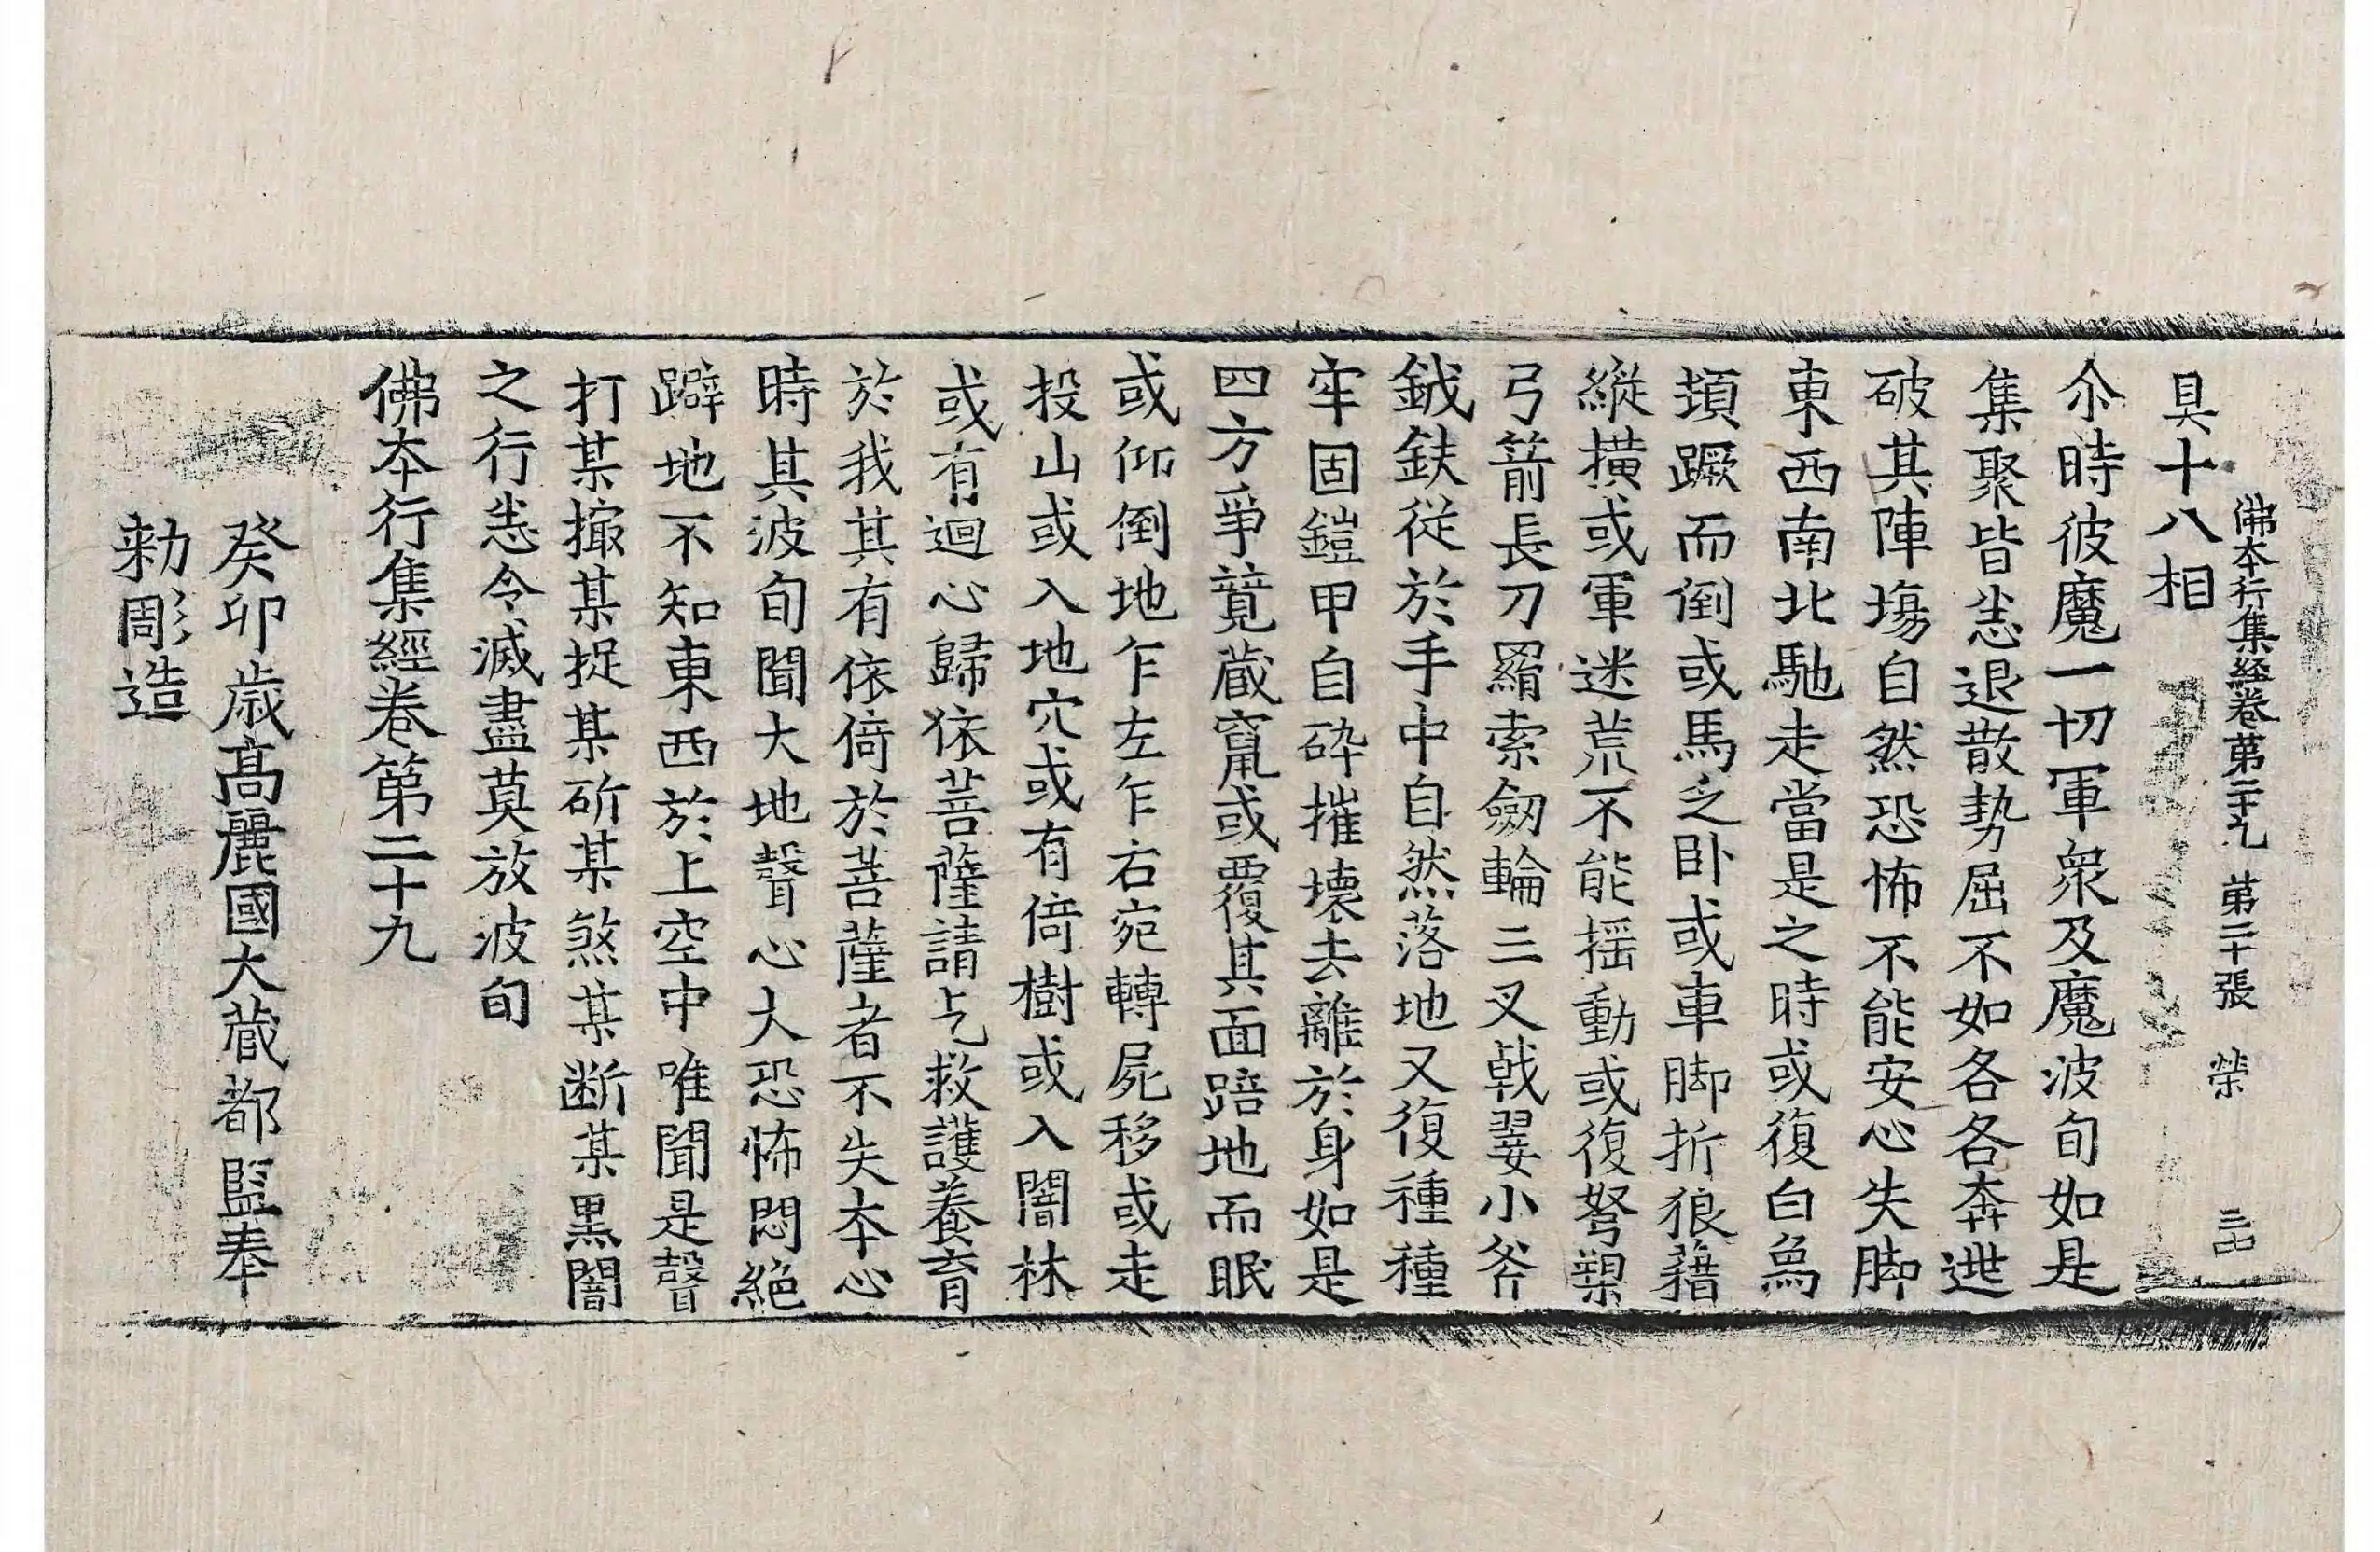 佛本行集經卷第二十九 第二十張 榮
具十八相
尒時彼魔一切軍衆及魔波旬如是
集聚皆悉退散勢屈不如各各奔逃
破其陣塲自然恐怖不能安心失脚
東西南北馳走當是之時或復白烏
頊蹶而倒或馬乏卧或車脚折狼藉
縱橫或軍迷荒不能揺動或復弩槊
弓箭長刀羂索劒輪三叉戟翣小斧
鉞鈇從於手中自然落地又復種種
牢固鎧甲自碎摧壊去離於身如是
四方爭競藏竄或覆其面踣地而眠
或仰倒地乍左乍右宛轉屍移或走
投山或入地穴或有倚樹或入闇林
或有迴心歸依菩薩請乞救護養育
於我其有依倚於菩薩者不失本心
時其波旬聞大地聲心大恐怖悶絶
躃地不知東西於上空中唯聞是聲
打某撮某捉某斫某煞某断某黒闇
之行悉令滅盡莫放波旬
佛本行集經卷第二十九
癸卯歳高麗國大藏都監奉
勑彫造